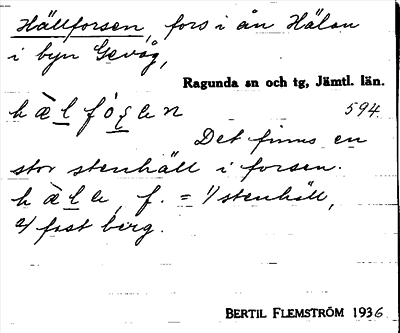 Hällforsen, fors i ån Hälån
i byn Gevåg,
Ragunda sn och tg, Jämtl. län.
hæ̀l fóşen 594
Det finns en
stor stenhäll i forsen.
hæ̀le, f. = 1/ stenhäll,
2/ fast berg.
BERTIL FLEMSTRÖM 1936